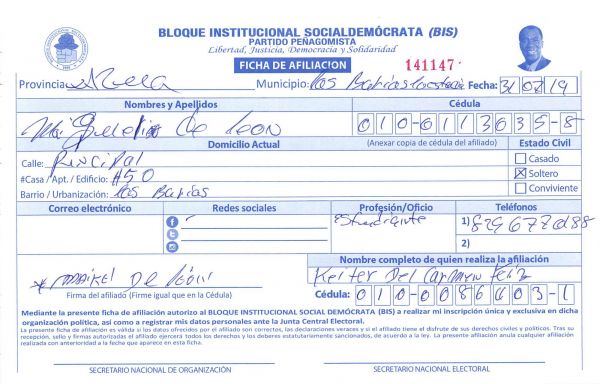 BLOQUE INSTITUCIONAL SOCIALDEMÓCRATA (BIS)
PARTIDO PEÑAGOMISTA
Libertad, Justicia, Democracia y Solidaridad
FICHA DE AFILIACION
141147
Provincia: Municipio: Las Fecha: 31/07/19
Nombres y Apellidos Cédula
De León 010-6113635-8
Domicilio Actual (Anexar copia de cédula del afiliado) Estado Civil
Calle: Principal Casado
#Casa / Apt. / Edificio: #50 Soltero
Barrio / Urbanización: Las Barias Conviviente
Correo electrónico Redes sociales Profesión/Oficio Teléfonos
Estudiante 1) 8296770188
2)
Nombre completo de quien realiza la afiliación
Maikel De León Del Carmen Feliz
Firma del afiliado (Firme igual que en la Cédula) Cédula: 010-0086603-1
Mediante la presente ficha de afiliación autorizo al BLOQUE INSTITUCIONAL SOCIAL DEMÓCRATA (BIS) a realizar mi inscripción única y exclusiva en dicha
organización política, así como a registrar mis datos personales ante la Junta Central Electoral.
La presente ficha de afiliación es válida si los datos ofrecidos por el afiliado son correctos, las declaraciones veraces y si el afiliado tiene el disfrute de sus derechos civiles y políticos. Tras su
recepción, sello y firmas autorizadas el afiliado ejercerá todos los derechos y los deberes estatutariamente sancionados, de acuerdo a la ley. La presente afiliación anula cualquier afiliación
realizada con anterioridad a la fecha que aparece en esta ficha.
SECRETARIO NACIONAL DE ORGANIZACIÓN SECRETARIO NACIONAL ELECTORAL